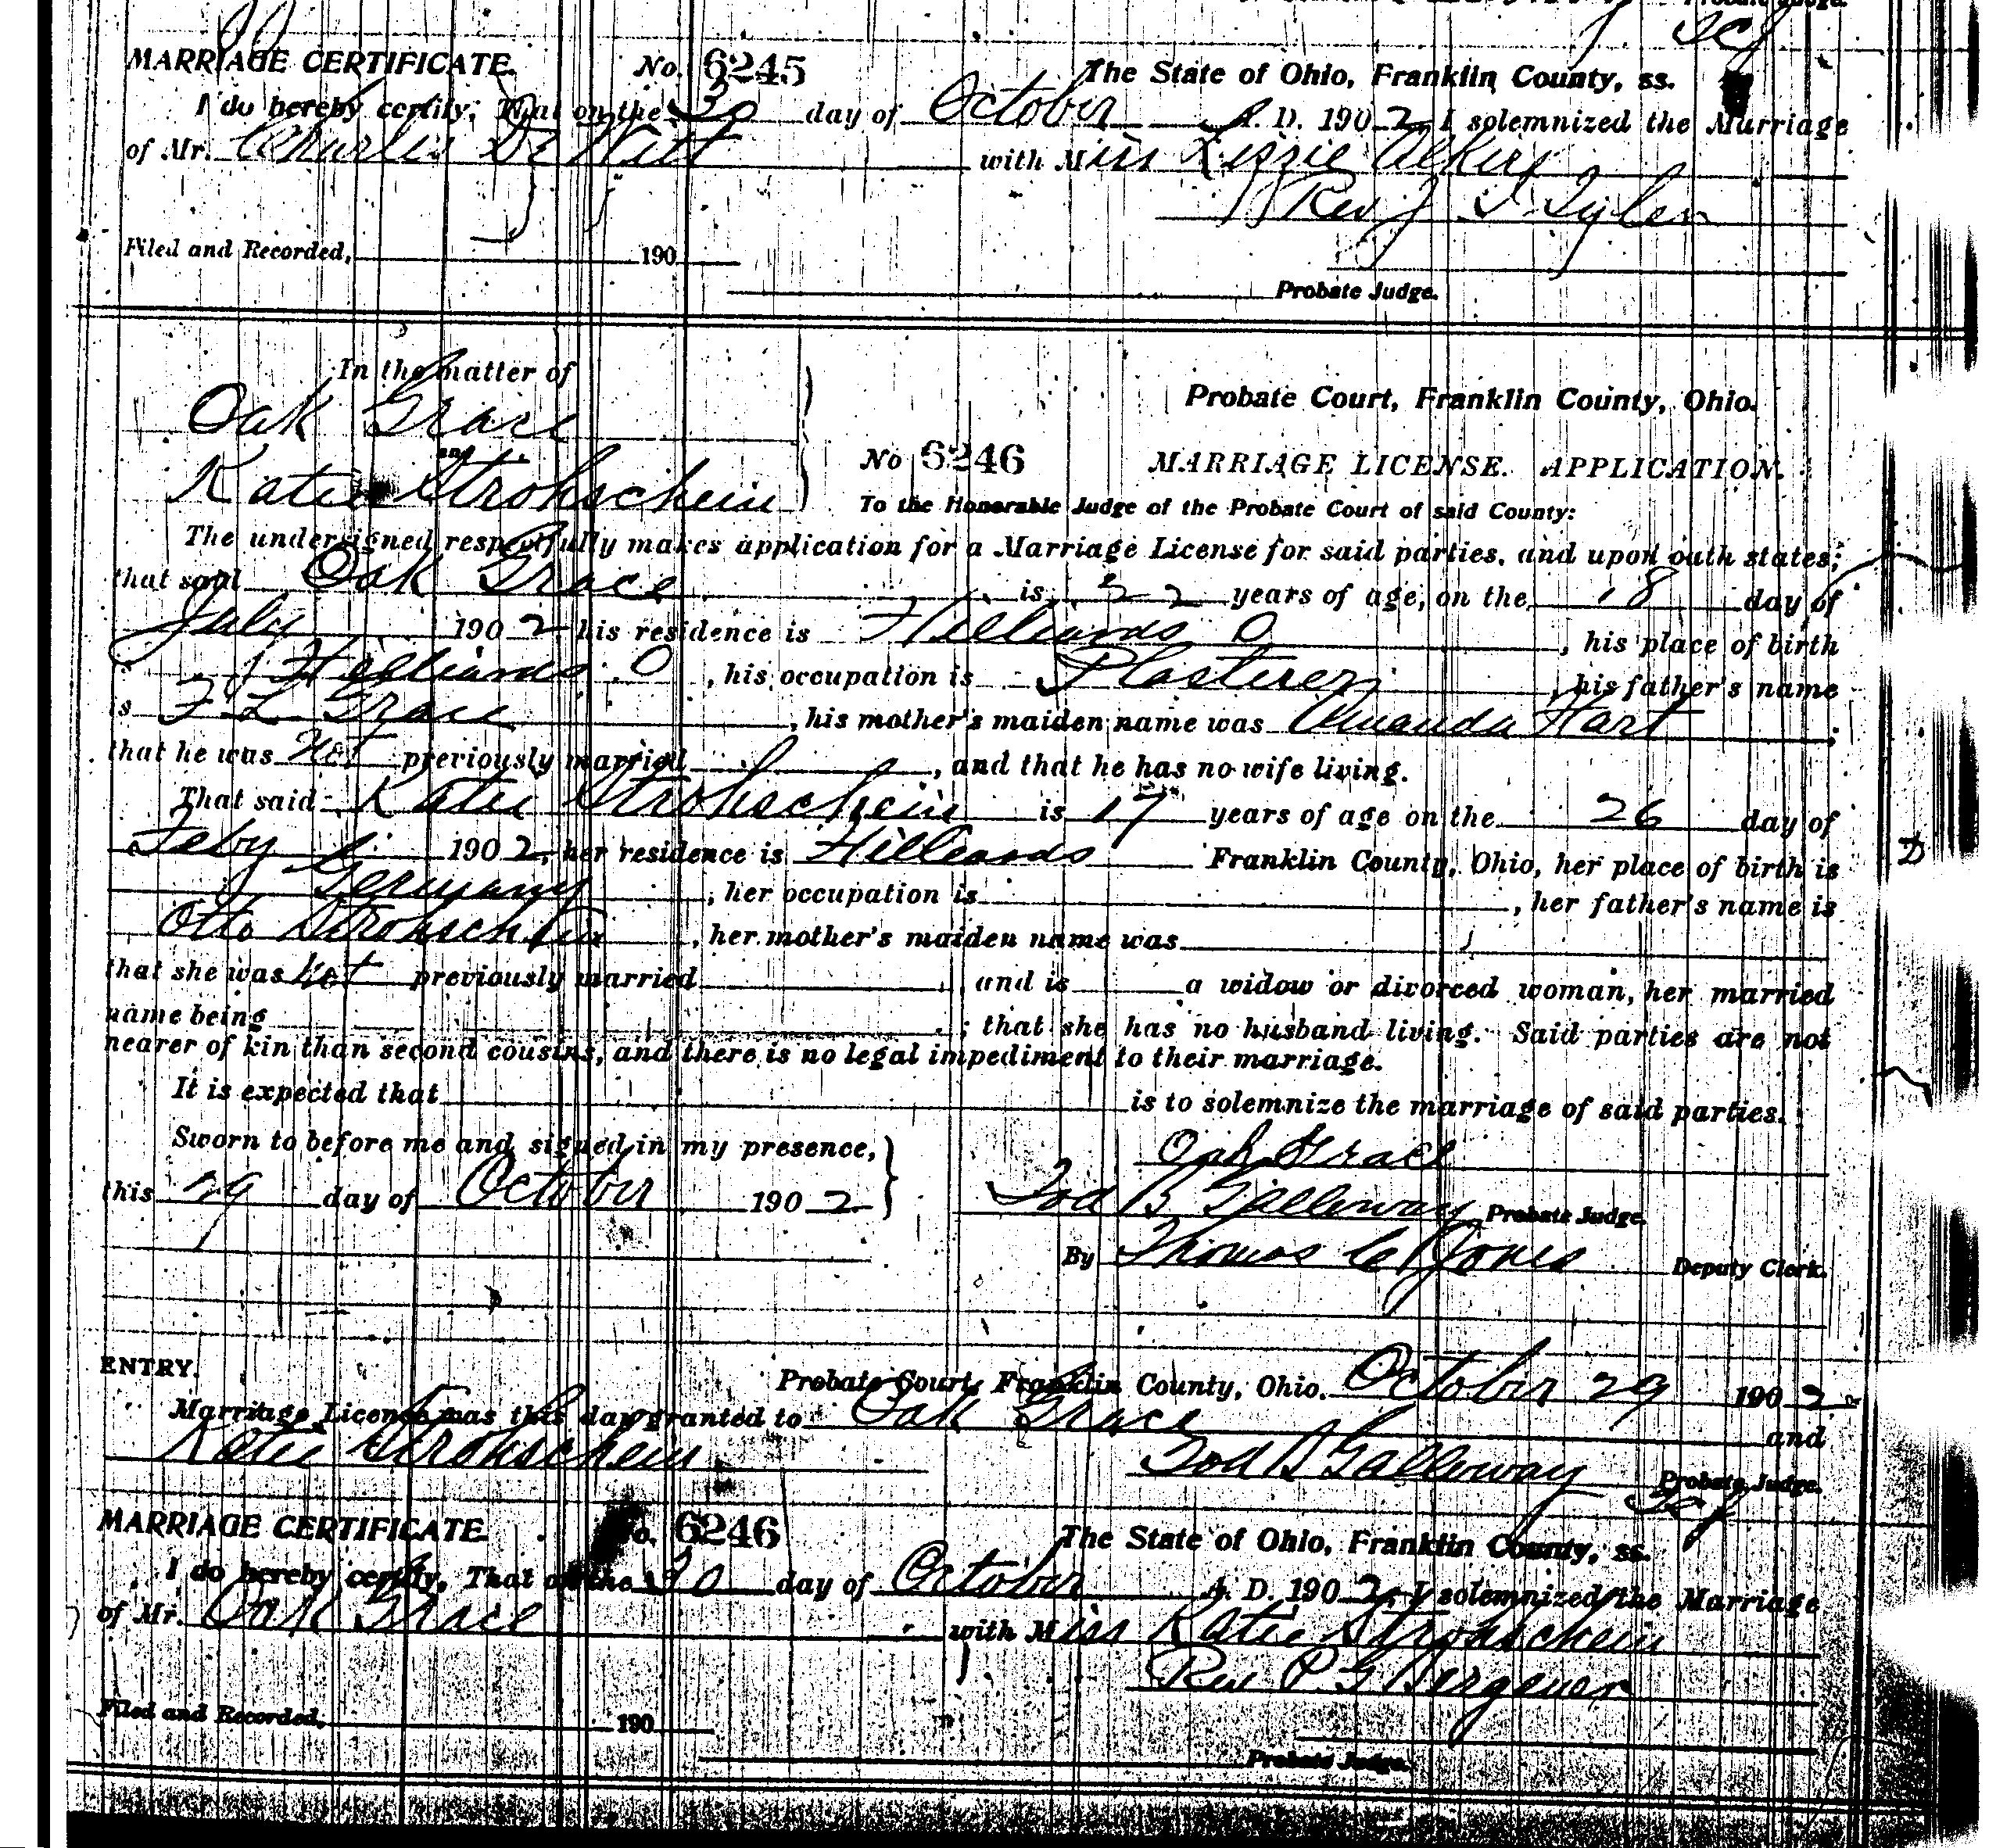 Probate Judge.
MARRIAGE CERTIFICATE. No. 6245 The State of Ohio, Franklin County, ss.
I do hereby certify, That on the 30 day of October A. D. 1902 I solemnized the Marriage
of Mr. Charles De Witt with Miss Lizzie
Rev J Tyler
Filed and Recorded, 190
Probate Judge.
In the matter of
Oak Grace
and
Katie Strohschein
Probate Court, Franklin County, Ohio.
No 6246 MARRIAGE LICENSE. APPLICATION.
To the Honorable Judge of the Probate Court of said County:
The undersigned respectfully makes application for a Marriage License for said parties, and upon oath states;
that said Oak Grace is 22 years of age, on the 18 day of
July 1902 his residence is Hilliards O, his place of birth
is Hilliards O, his occupation is Plasterer, his father's name
is F L Grace, his mother's maiden name was Amanda Hart;
that he was not previously married, and that he has no wife living.
That said Katie Strohschein is 17 years of age on the 26 day of
Feby 1902, her residence is Hilliards Franklin County, Ohio, her place of birth is
Germany, her occupation is, her father's name is
Otto Strohschein, her mother's maiden name was
that she was not previously married, and is a widow or divorced woman, her married
name being; that she has no husband living. Said parties are not
nearer of kin than second cousins, and there is no legal impediment to their marriage.
It is expected that is to solemnize the marriage of said parties.
Sworn to before me and signed in my presence, Oak Grace
this 29 day of October 1902 Tod B Galloway Probate Judge.
By Thomas C Jones Deputy Clerk.
ENTRY. Probate Court, Franklin County, Ohio. October 29 1902
Marriage License was this day granted to Oak Grace and
Katie Strohschein Tod B Galloway Probate Judge.
MARRIAGE CERTIFICATE. No. 6246 The State of Ohio, Franklin County, ss.
I do hereby certify, That on the 30 day of October A. D. 1902, I solemnized the Marriage
of Mr. Oak Grace with Miss Katie Strohschein
Rev P G
Filed and Recorded, 190
Probate Judge.